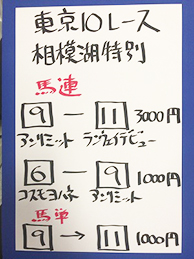 東京10レース
相模湖特別
馬連
9 - 11 3000円
アンリミット ランウェイデビュー
6 - 9 1000円
コスモヨハネ アンリミット
馬単
9 → 11 1000円